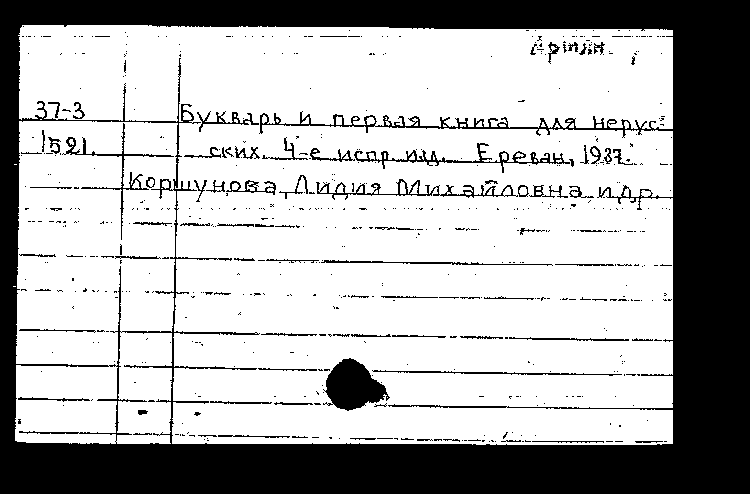 Армян.
37-3 Букварь и первая книга для нерус-
1521. ских. 4-е испр. изд. Ереван, 1937.
Коршунова, Лидия Михайловна и др.